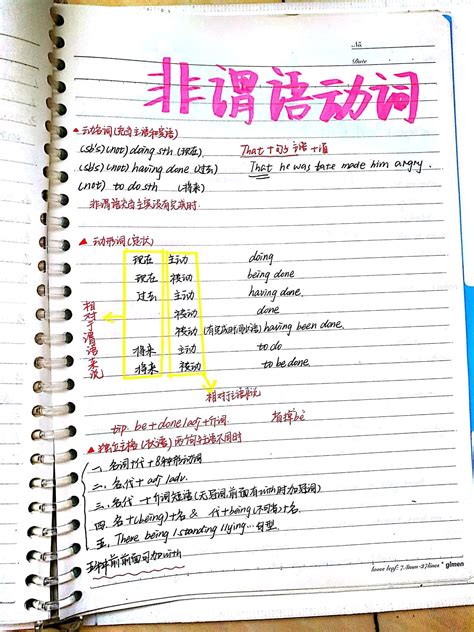 No.
Date
非谓语动词
▲动名词(充当主语和宾语)
(sb's)(not) doing sth (现在) That+句子 主语+谓
(sb's)(not) having done (过去) That he was late made him angry.
(not) to do sth (将来)
非谓语充当主宾没有完成时.
▲动形词(定状)
现在 主动 doing
现在 被动 being done
过去 主动 having done.
被动 done
被动 (有完成时间状语) having been done.
将来 主动 to do
将来 被动 to be done.
相对于谓语来说
相对于主语来说
tip. be+done/adj+介词. 省掉be
▲独立主格(状语) 两句主语不同时
一、名词+代+8种形动词
二、名代+adj/adv.
三、名代+介词短语(无冠词,前面有with时加冠词)
四、名+(being)+名 & 代+being(不可省)+名.
五、There being/standing/lying...句型
五种前前面可加with
loose leaf: 7.8mm-27lines * glmen